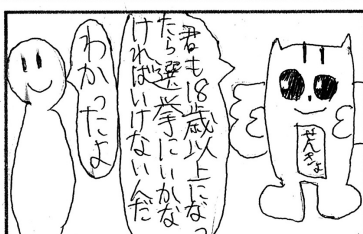 君も18歳以上になっ
たら選挙にいかな
ければいけないんだ
わかったよ
せんきょ